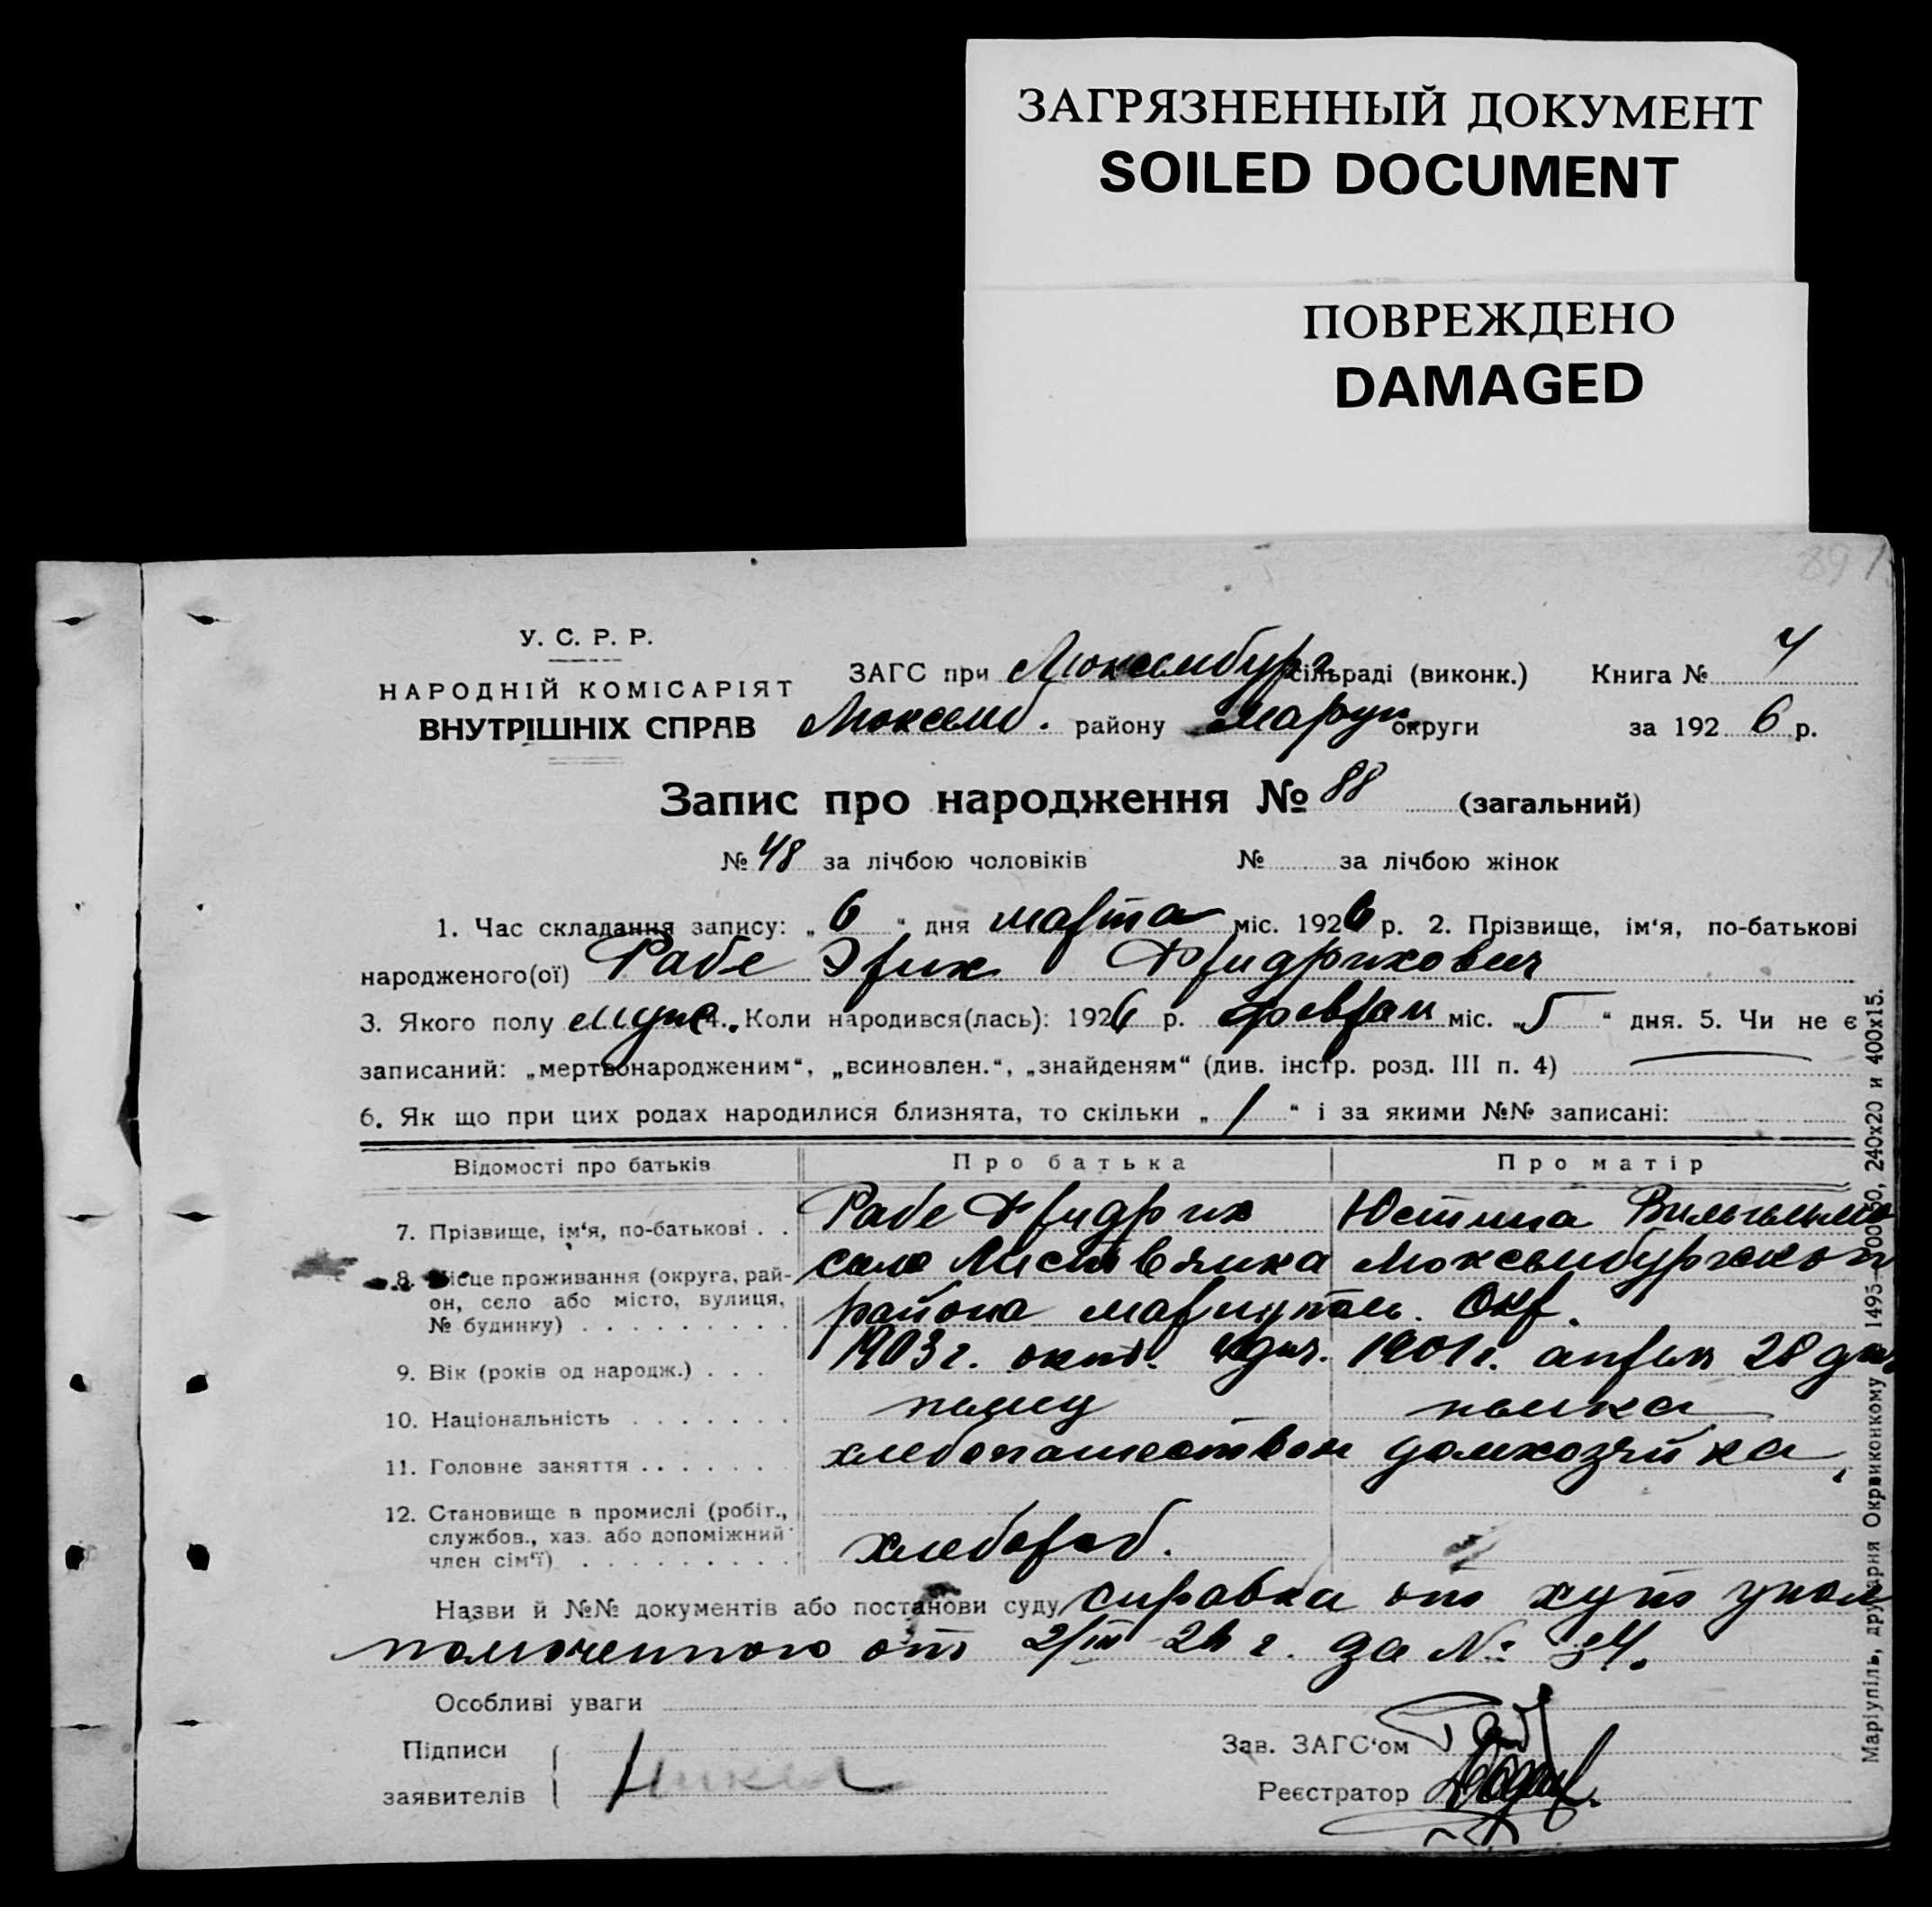 ЗАГРЯЗНЕННЫЙ ДОКУМЕНТ
SOILED DOCUMENT
ПОВРЕЖДЕНО
DAMAGED
У. С. Р. Р.
НАРОДНІЙ КОМІСАРІЯТ
ВНУТРІШНІХ СПРАВ
ЗАГС при Люксембург сільраді (виконк.) Книга № 4
Люксемб. району Мариуп округи за 1926 р.
Запис про народження № 88 (загальний)
№ 48 за лічбою чоловіків № за лічбою жінок
1. Час складання запису: „6“ дня марта міс. 1926 р. 2. Прізвище, ім‘я, по-батькові
народженого(ої) Рабе Эрих Фридрихович
3. Якого полу муж. 4. Коли народився(лась): 1926 р. феврал міс. „5“ дня. 5. Чи не є
записаний: „мертвонародженим“, „всиновлен.“, „знайденям“ (див. інстр. розд. III п. 4)
6. Як що при цих родах народилися близнята, то скільки „1“ і за якими №№ записані:
Відомості про батьків Про батька Про матір
7. Прізвище, ім‘я, по-батькові . . Рабе Фридрих Юстина Вильгельмо
8. Місце проживання (округа, рай-
он, село або місто, вулиця,
№ будинку) . . . . . . . . .
село Листвянка Люксембургского
района мариуполь. Окр.
9. Вік (років од народж.) . . . 1903 г. окт. дня. 1901 г. апрель 28 дня
10. Національність . . . . . . . немец немка
11. Головне заняття . . . . . . хлебопашеством домхозяйка
12. Становище в промислі (робіт.,
службов., хаз. або допоміжний
член сім‘ї) . . . . . . . . .
хлебороб.
Назви й №№ документів або постанови суду справка от хут упол
номоченного от 2/III 26 г. за № 34.
Особливі уваги
Підписи
заявителів
Зав. ЗАГС‘ом
Реєстратор
Маріупіль, друкарня Окрвиконкому 1495—00050, 240х20 и 400х15.